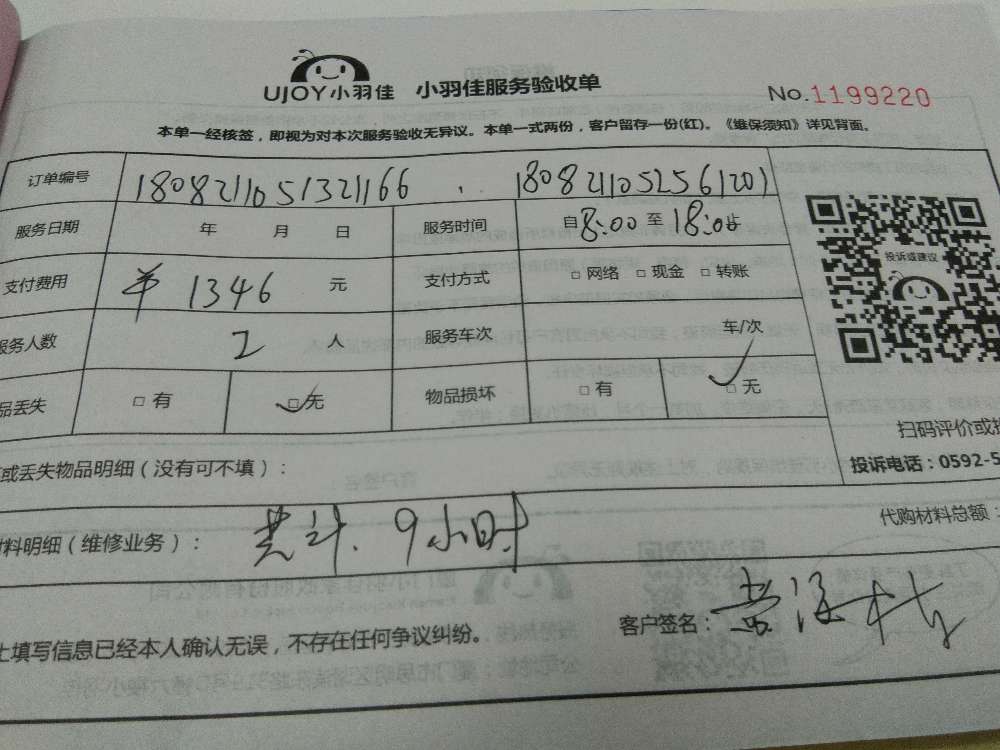 UJOY小羽佳 小羽佳服务验收单 No.1199220
本单一经核签，即视为对本次服务验收无异议。本单一式两份，客户留存一份(红)。《维保须知》详见背面。
订单编号 1808211051321166 . 1808211052561201
服务日期 年 月 日 服务时间 自8:00至18:00止
支付费用 ¥ 1346 元 支付方式 □ 网络 □ 现金 □ 转账
投诉或建议
服务人数 2 人 服务车次 车/次
品丢失 □ 有 ✓□无 物品损坏 □ 有 ✓□ 无
扫码评价或投
或丢失物品明细（没有可不填）：
投诉电话：0592-5
料明细（维修业务）： 共计. 9小时
代购材料总额：
上填写信息已经本人确认无误，不存在任何争议纠纷。
客户签名：